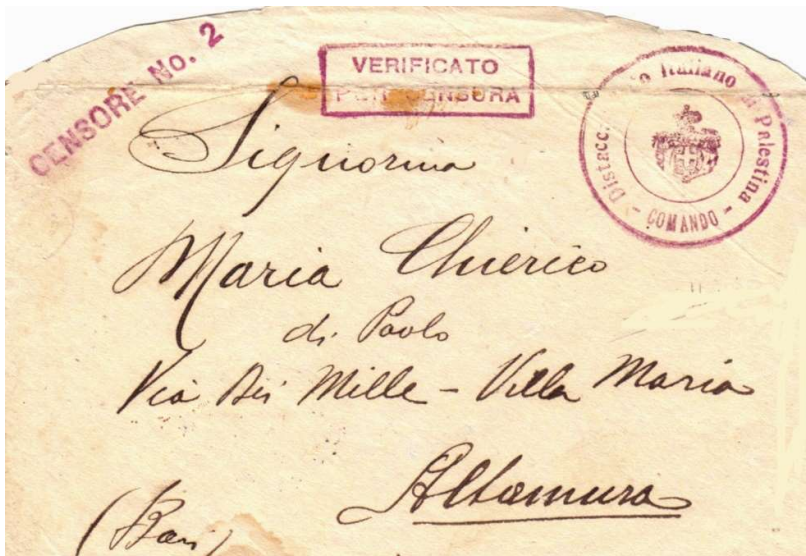 CENSORE No. 2
VERIFICATO
PER CENSURA
Distacc. Italiano di Palestina
- COMANDO -
Signorina
Maria Chierico
di Paolo
Via dei Mille - Villa Maria
Altamura
(Bari)